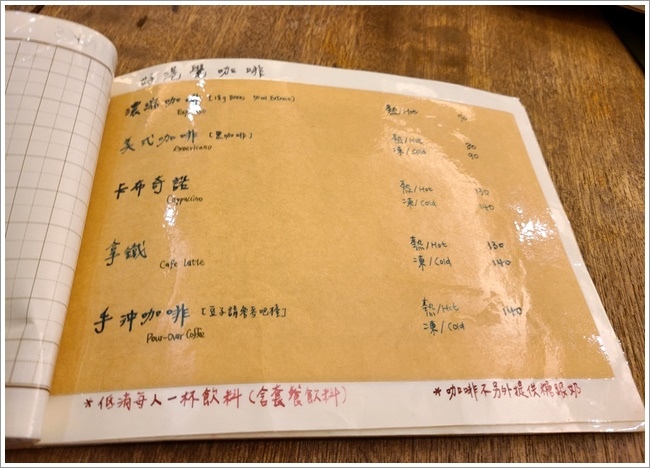 咖啡
濃縮咖啡 熱/Hot
Espresso
美式咖啡 [黑咖啡] 熱/Hot 80
Americano 凍/Cold 90
卡布奇諾 熱/Hot 130
Cappuccino 凍/Cold 140
拿鐵 熱/Hot 130
Cafe Latte 凍/Cold 140
手沖咖啡 [豆子請參考吧檯] 熱/Hot 140
Pour-Over Coffee 凍/Cold
*低消每人一杯飲料(含套餐飲料) *咖啡不另外提供糖跟奶